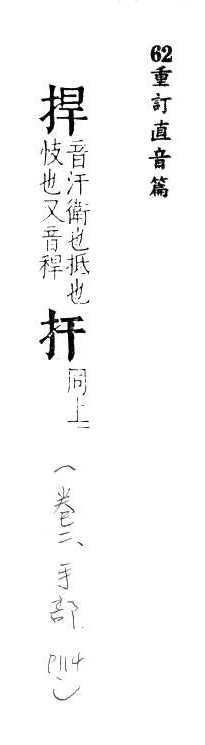 62重訂直音篇
捍音汗衛也抵也
忮也又音稈
扞同上
(卷二、手部 P114)